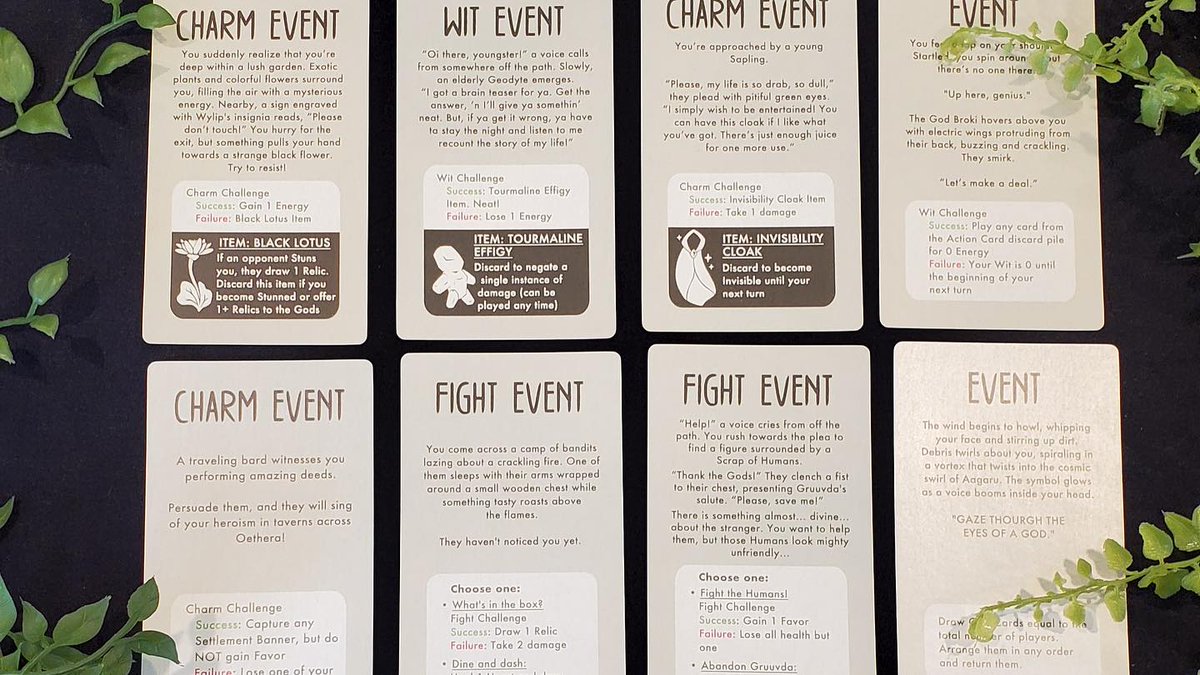 CHARM EVENT
You suddenly realize that you're
deep within a lush garden. Exotic
plants and colorful flowers surround
you, filling the air with a mysterious
energy. Nearby, a sign engraved
with Wylip's insignia reads, "Please
don't touch!" You hurry for the
exit, but something pulls your hand
towards a strange black flower.
Try to resist!
Charm Challenge
Success: Gain 1 Energy
Failure: Black Lotus Item
ITEM: BLACK LOTUS
If an opponent Stuns
you, they draw 1 Relic.
Discard this item if you
become Stunned or offer
1+ Relics to the Gods
WIT EVENT
"Oi there, youngster!" a voice calls
from somewhere off the path. Slowly,
an elderly Geodyte emerges.
"I got a brain teaser for ya. Get the
answer, 'n I'll give ya somethin'
neat. But, if ya get it wrong, ya have
to stay the night and listen to me
recount the story of my life!"
Wit Challenge
Success: Tourmaline Effigy
Item. Neat!
Failure: Lose 1 Energy
ITEM: TOURMALINE
EFFIGY
Discard to negate a
single instance of
damage (can be
played any time)
CHARM EVENT
You're approached by a young
Sapling.
"Please, my life is so drab, so dull,"
they plead with pitiful green eyes.
"I simply wish to be entertained! You
can have this cloak if I like what
you've got. There's just enough juice
for one more use."
Charm Challenge
Success: Invisibility Cloak Item
Failure: Take 1 damage
ITEM: INVISIBILITY
CLOAK
Discard to become
Invisible until your
next turn
EVENT
You a on your
you spin around but
there's no one there.
"Up here, genius."
The God Broki hovers above you
with electric wings protruding from
their back, buzzing and crackling.
They smirk.
"Let's make a deal."
Wit Challenge
Success: Play any card from
the Action Card discard pile
for 0 Energy
Failure: Your Wit is 0 until
the beginning of your
next turn
CHARM EVENT
A traveling bard witnesses you
performing amazing deeds.
Persuade them, and they will sing
of your heroism in taverns across
Oethera!
Charm Challenge
Success: Capture any
Settlement Banner, but do
NOT gain Favor
Failure: Lose one of your
FIGHT EVENT
You come across a camp of bandits
lazing about a crackling fire. One of
them sleeps with their arms wrapped
around a small wooden chest while
something tasty roasts above
the flames.
They haven't noticed you yet.
Choose one:
• What's in the box?
Fight Challenge
Success: Draw 1 Relic
Failure: Take 2 damage
• Dine and dash:
FIGHT EVENT
"Help!" a voice cries from off the
path. You rush towards the plea to
find a figure surrounded by a
Scrap of Humans.
"Thank the Gods!" They clench a fist
to their chest, presenting Gruuvda's
salute. "Please, save me!"
There is something almost... divine...
about the stranger. You want to help
them, but those Humans look mighty
unfriendly...
Choose one:
• Fight the Humans!
Fight Challenge
Success: Gain 1 Favor
Failure: Lose all health but
one
• Abandon Gruuvda:
EVENT
The wind begins to howl, whipping
your face and stirring up dirt.
Debris twirls about you, spiraling in
a vortex that twists into the cosmic
swirl of Aagaru. The symbol glows
as a voice booms inside your head.
"GAZE THOURGH THE
EYES OF A GOD."
Draw cards equal to the
total number of players.
Arrange them in any order
and return them.